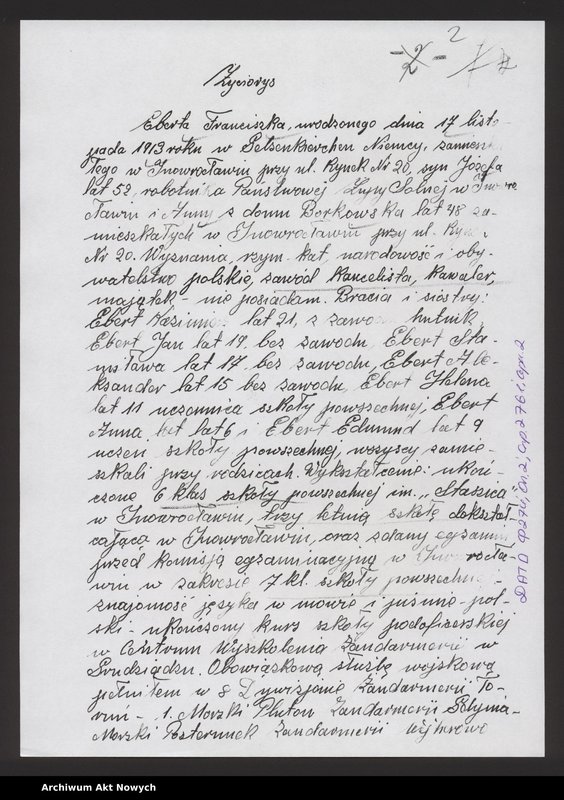 2
-2-
Życiorys
Eberta Franciszka, urodzonego dnia 17 listo-
pada 1913 roku w Gelsenkirchen Niemcy, zamieszk
łego w Inowrocławiu przy ul. Rynek Nr 20, syn Józefa
lat 52, robotnika Państwowej Żupy Solnej w Inowro
cławiu i Anny z domu Borkowska lat 48 za-
mieszkałych w Inowrocławiu przy ul. Rynek
Nr 20. Wyznania, rzym. kat, narodowość i oby-
watelstwo polskie, zawód kancelista, kawaler,
majątek - nie posiadam. Bracia i siostry:
Ebert Kazimierz lat 21, z zawodu hutnik,
Ebert Jan lat 19 bez zawodu, Ebert Sta-
nisława lat 17 bez zawodu, Ebert Ale-
ksander lat 15 bez zawodu, Ebert Helena
lat 11 uczennica szkoły powszechnej, Ebert
Anna lat 6 i Ebert Edmund lat 9
uczeń szkoły powszechnej, wszyscy zamie-
szkali przy rodzicach. Wykształcenie: ukoń-
czone 6 klas szkoły powszechnej im. "Staszica"
w Inowrocławiu, trzy letnią szkołę dokształ-
cającą w Inowrocławiu, oraz zdany egzamin
przed komisją egzaminacyjną w Inowrocła-
wiu w zakresie 7 kl. szkoły powszechnej -
znajomość języka w mowie i piśmie - pol-
ski - ukończony kurs szkoły podoficerskiej
w Centrum Wyszkolenia Żandarmerii w
Grudziądzu. Obowiązkową służbę wojskową
pełniłem w 8 Dywizjonie Żandarmerii To-
ruń - 1. Morski Pluton Żandarmerii Gdynia -
Morski Posterunek Żandarmerii Wejherowo
ДАТО Ф 274, оп. 2, спр 276 i, арк. 2
Archiwum Akt Nowych